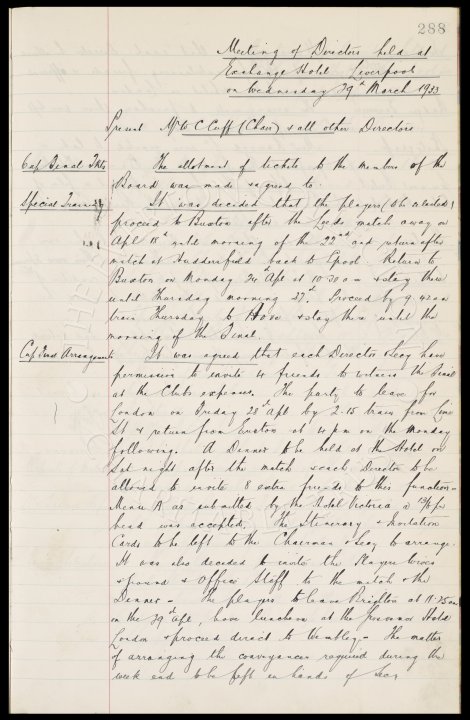 288
Meeting of Directors held at
Exchange Hotel Liverpool
on Wednesday 29th March 1933
Present Mr W C Cuff (Chair) & all other Directors
Cup Final Tkts The allotment of tickets to the members of the
Board was made & agreed to.
Special Training It was decided that the players (to be selected)
proceed to Buxton after the Leeds match away on
Apl 18th until morning of the 22nd and return after
match at Huddersfield back to Lpool. Return to
Buxton on Monday 24th Apl at 10.30 am & stay there
until Thursday morning 27th. Proceed by 9.42 am
train Thursday to Hove & stay there until the
morning of the Final.
Cup Final Arrangements It was agreed that each Director & Secy have
permission to invite 4 friends to witness the Final
at the Clubs expense. The party to leave for
London on Friday 28th Apl by 2-15 train from Lime
St & return from Euston at 4 pm on the Monday
following. A Dinner to be held at the Hotel on
Sat night after the match & each Director to be
allowed to invite 8 extra friends to this function -
Menu A as submitted by the Hotel Victoria @ per
head was accepted. The Itinerary & Invitation
Cards to be left to the Chairman & Secy to arrange.
It was also decided to invite the Players wives
& ground & Office Staff to the match & the
Dinner - The players to leave Brighton at 11-25 am
on the 29th Apl, have luncheon at the Hotel
London & proceed direct to Wembley - The matter
of arranging the conveyances required during the
week end to be left in hands of Secy